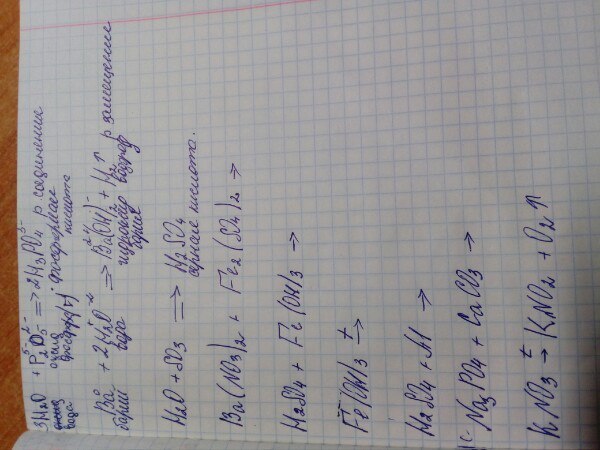 3H₂O + P₂O₅ ⇒ 2H₃PO₄ р. соединения
вода оксид фосфора(V) фосфорная кислота
Ba + 2H₂O ⇒ Ba(OH)₂ + H₂↑ р замещения
барий вода гидроксид бария водород
H₂O + SO₃ ⇒ H₂SO₄
серная кислота.
Ba(NO₃)₂ + Fe₂(SO₄)₂ →
H₂SO₄ + Fe(OH)₃ →
Fe(OH)₃ t→
H₂SO₄ + Al →
Na₃PO₄ + CaCO₃ →
KNO₃ t→ KNO₂ + O₂↑